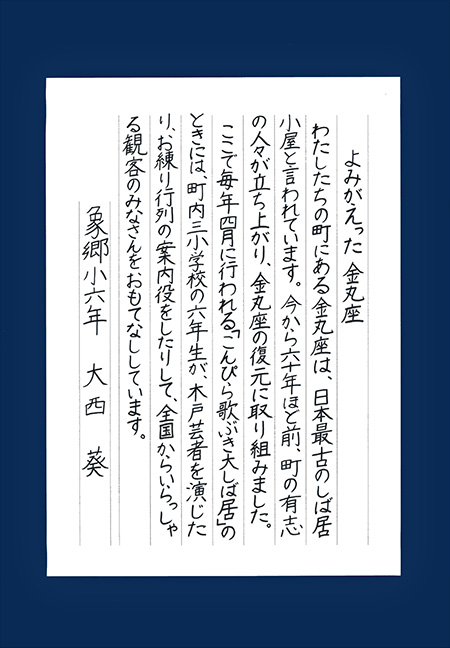 よみがえった 金丸座
わたしたちの町にある金丸座は、日本最古のしば居
小屋と言われています。今から六十年ほど前、町の有志
の人々が立ち上がり、金丸座の復元に取り組みました。
ここで毎年四月に行われる「こんぴら歌ぶき大しば居」の
ときには、町内三小学校の六年生が、木戸芸者を演じた
り、お練り行列の案内役をしたりして、全国からいらっしゃ
る観客のみなさんをおもてなししています。
象郷小六年 大西 葵